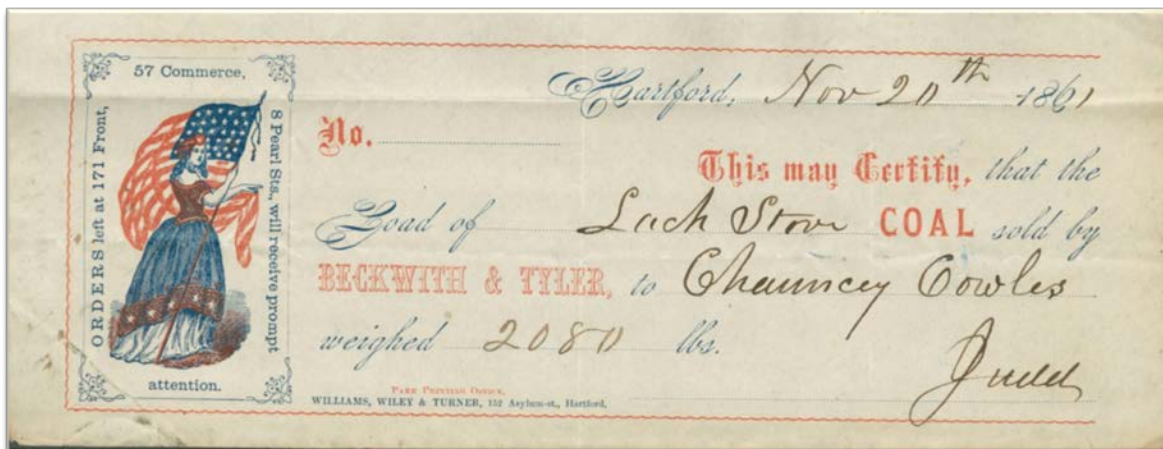 57 Commerce,
ORDERS left at 171 Front,
8 Pearl Sts., will receive prompt
attention.
Hartford, Nov 20th 1861
No.
This may Certify, that the
Load of Lach Stove COAL sold by
BECKWITH & TYLER, to Chauncey Cowles
weighed 2080 lbs.
Judd
PARK PRINTING OFFICE,
WILLIAMS, WILEY & TURNER, 152 Asylum-st., Hartford.